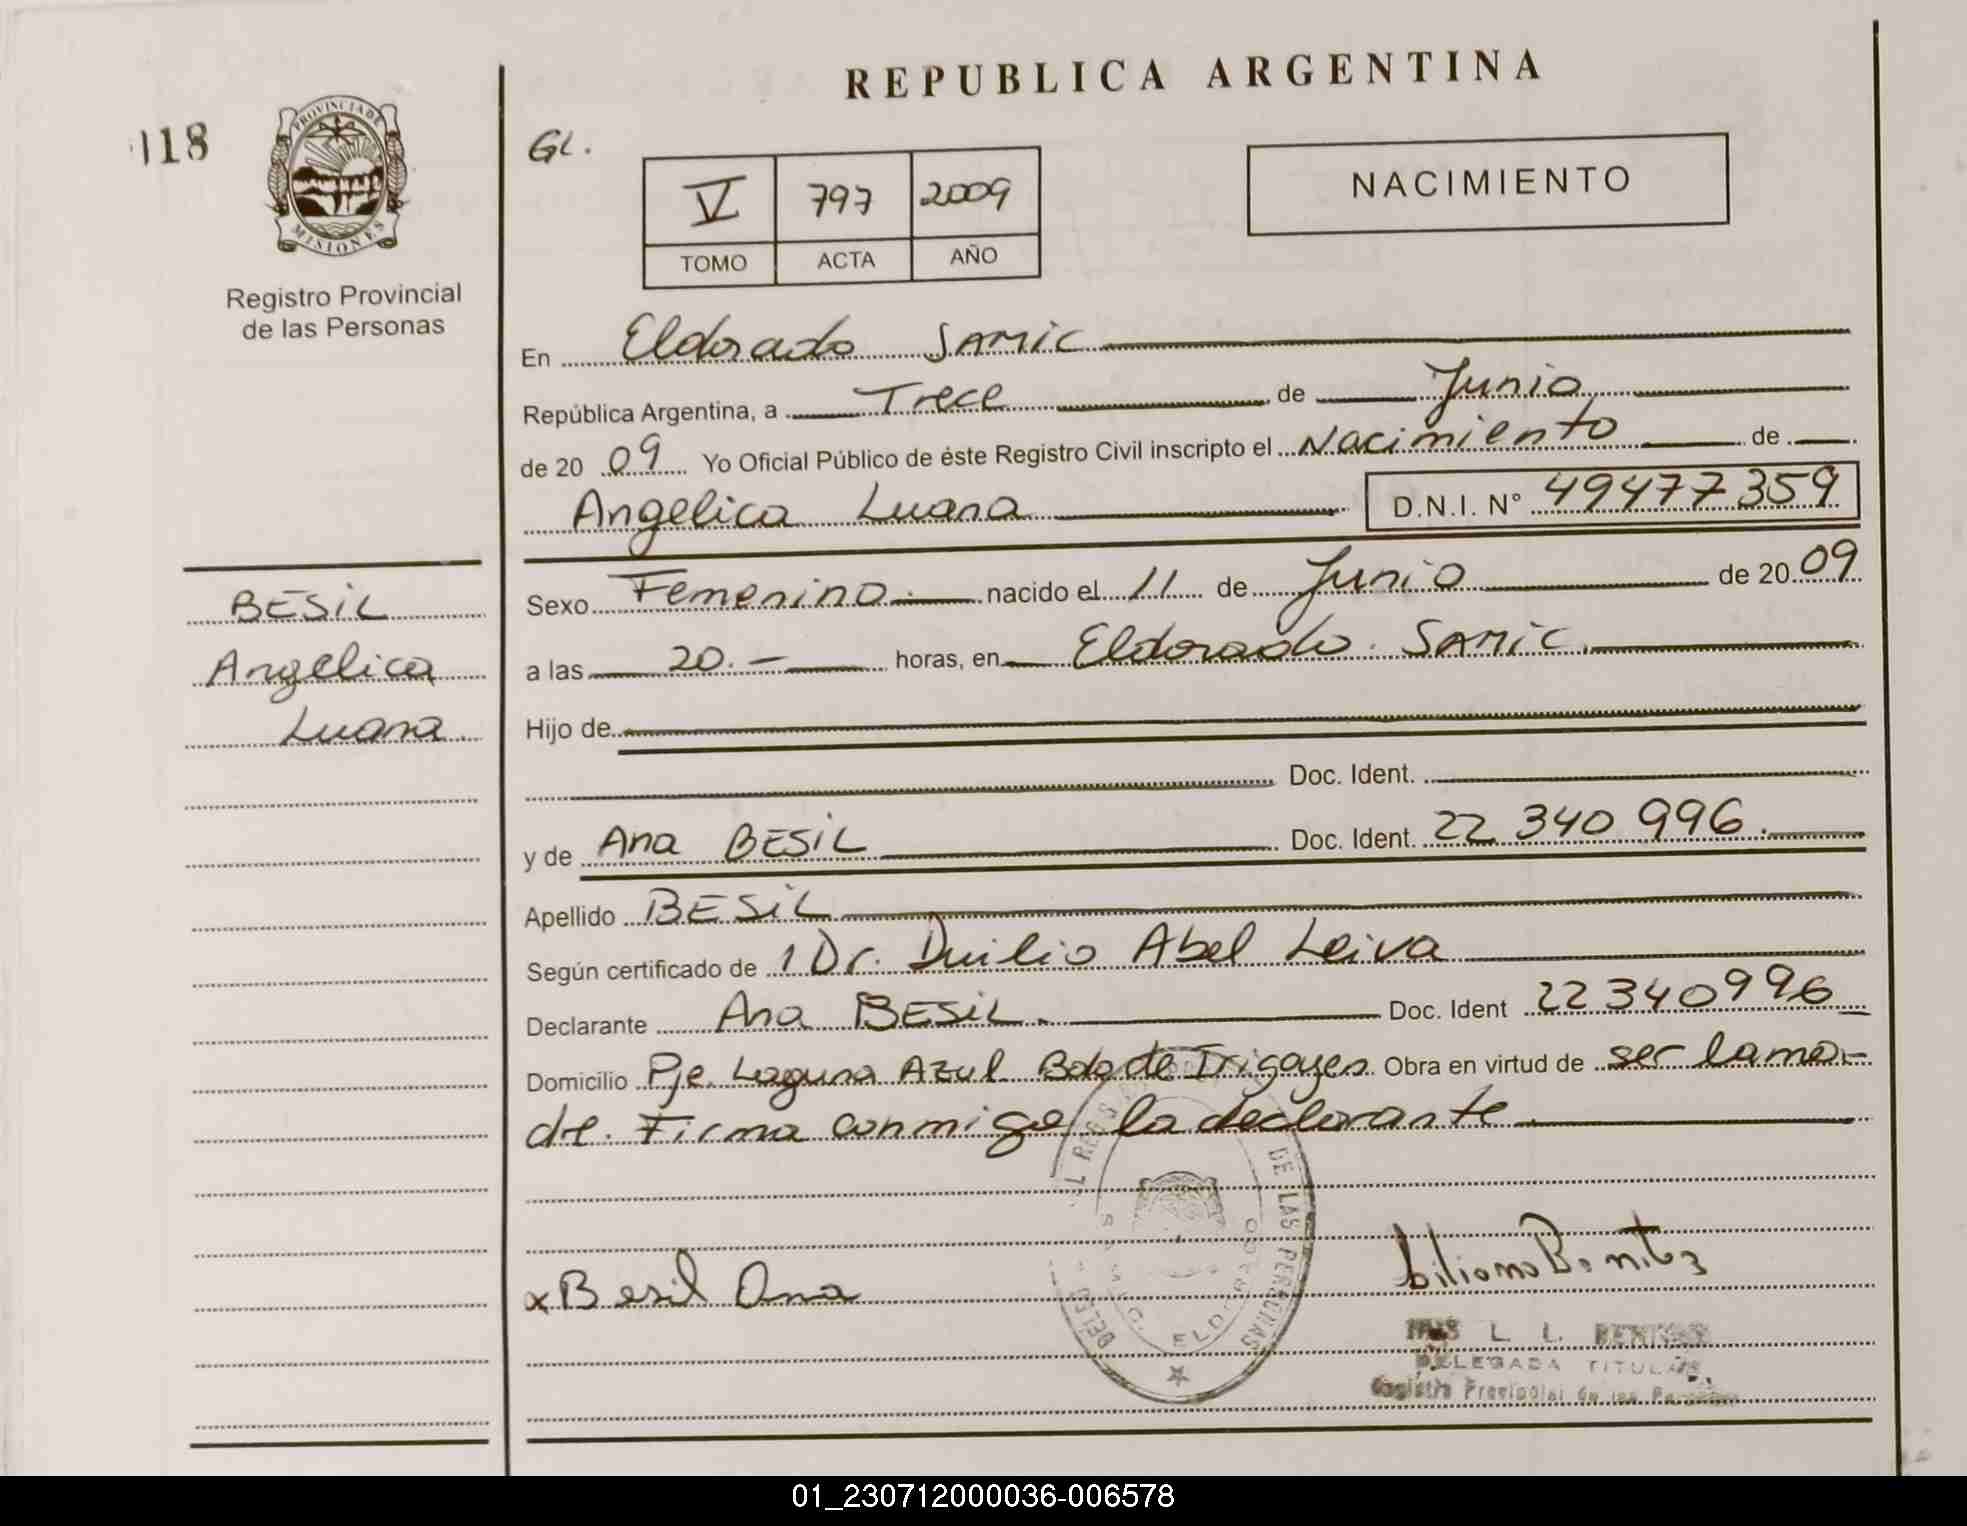 REPUBLICA ARGENTINA
118
PROVINCIA DE
MISIONES
Registro Provincial
de las Personas
GL.
V 797 2009
TOMO ACTA AÑO
NACIMIENTO
En Eldorado SAMIC
República Argentina, a Trece de Junio
de 20 09 Yo Oficial Público de éste Registro Civil inscripto el Nacimiento de
Angelica Luana D.N.I. N° 49477359
BESiL
Angelica
Luana.
Sexo Femenino. nacido el 11 de Junio de 20 09
a las 20.- horas, en Eldorado. SAMIC.
Hijo de
Doc. Ident.
y de Ana BESiL Doc. Ident. 22 340 996.
Apellido BESiL
Según certificado de 1 Dr. Duilio Abel Leiva
Declarante Ana BESiL. Doc. Ident 22340996
Domicilio Pje. Laguna Azul Bdo de Irigoyen. Obra en virtud de ser la ma-
dre. Firma conmigo la declarante.
DE LAS PERSONAS
ELDORADO
x Besil Ana
Liliana Benitez
L. L.
DELEGADA TITULAR
Registro Provincial de las Personas
01_230712000036-006578